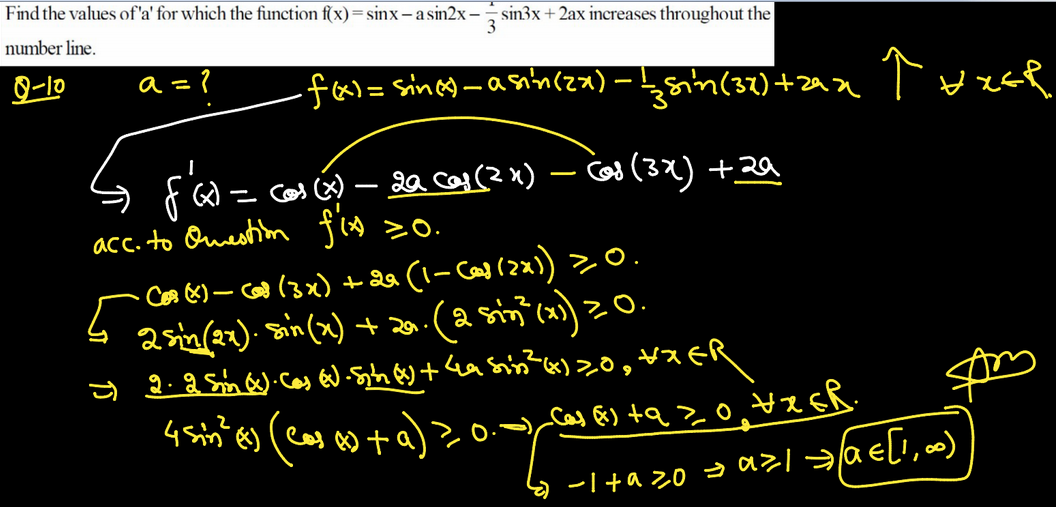 Find the values of 'a' for which the function f(x) = sinx – a sin2x – 1/3 sin3x + 2ax increases throughout the
number line.
Q-10 a = ? f(x) = sin(x) – a sin(2x) – 1/3 sin(3x) + 2ax ↑ ∀ x ∈ R.
⇒ f'(x) = cos(x) – 2a cos(2x) – cos(3x) + 2a
acc. to Question f'(x) ≥ 0.
cos(x) – cos(3x) + 2a (1 – cos(2x)) ≥ 0.
2 sin(2x) · sin(x) + 2a · (2 sin²(x)) ≥ 0.
⇒ 2 · 2 sin(x) · cos(x) · sin(x) + 4a sin²(x) ≥ 0, ∀ x ∈ R
4 sin²(x) (cos(x) + a) ≥ 0. → cos(x) + a ≥ 0, ∀ x ∈ R.
–1 + a ≥ 0 ⇒ a ≥ 1 ⇒ a ∈ [1, ∞) Ans